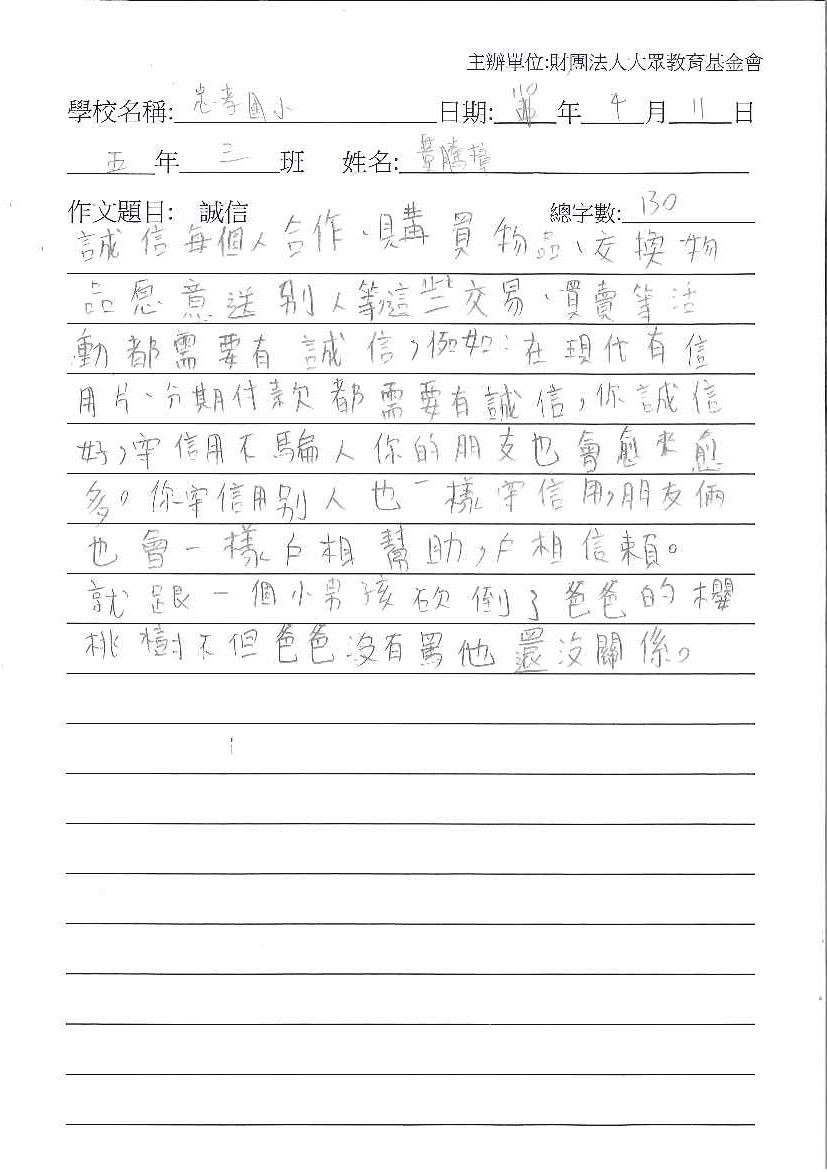 主辦單位:財團法人大眾教育基金會
學校名稱: 忠孝國小 日期: 110 年 4 月 11 日
五 年 三 班 姓名: 葉騰
作文題目: 誠信 總字數: 130
誠信每個人合作、購買物品、交換物
品愿意送別人等這些交易、買賣等活
動都需要有誠信,例如:在現代有信
用片、分期付款都需要有誠信,你誠信
好,守信用不騙人你的朋友也會愈來愈
多。你守信用別人也一樣守信用,朋友倆
也會一樣戶相幫助,戶相信賴。
就跟一個小男孩砍倒了爸爸的櫻
桃樹不但爸爸沒有罵他還沒關係。